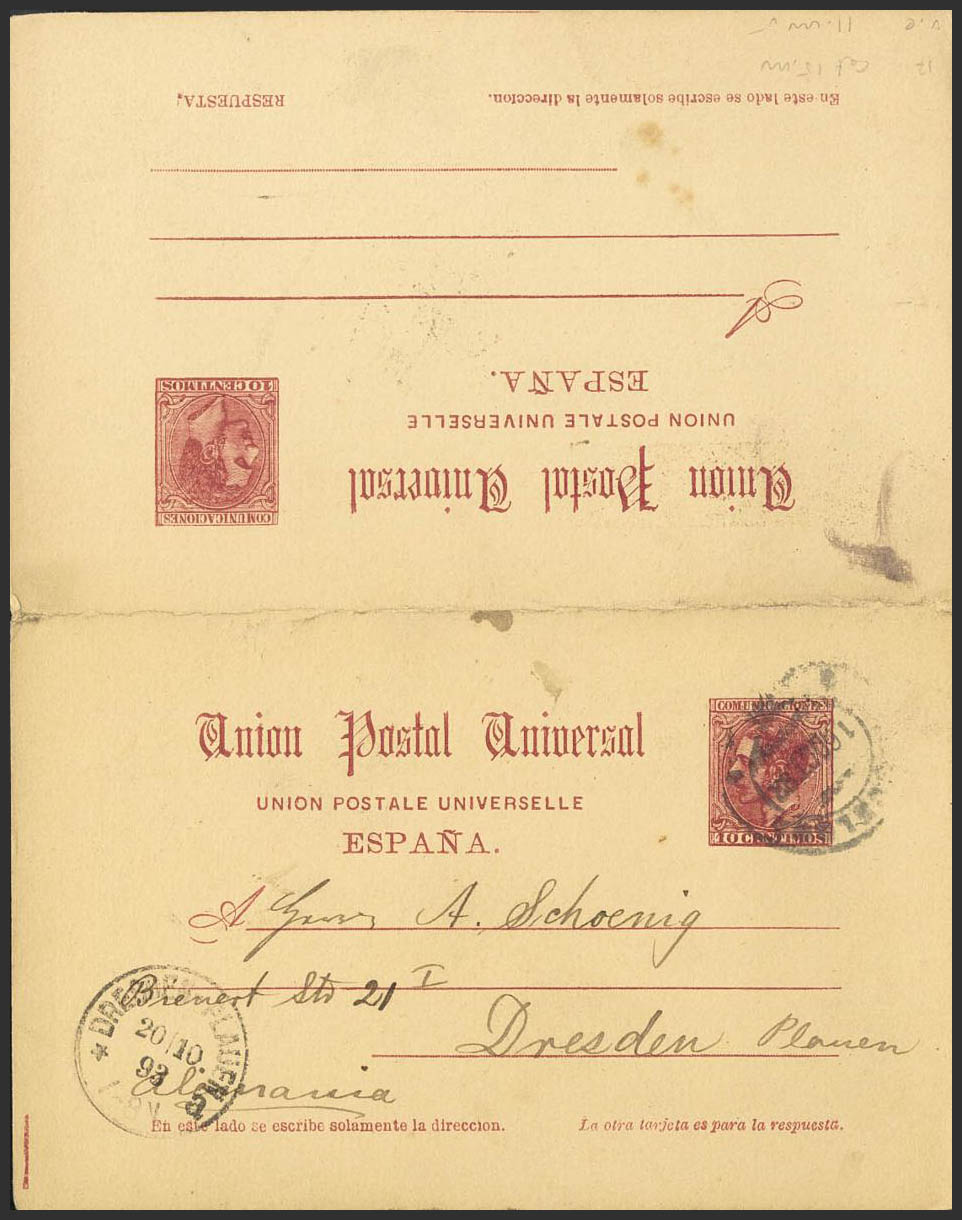 En este lado se escribe solamente la direccion. RESPUESTA.
A
ESPAÑA.
UNION POSTALE UNIVERSELLE
Union Postal Universal
10 CENTIMOS
COMUNICACIONES
Union Postal Universal
UNION POSTALE UNIVERSELLE
ESPAÑA.
COMUNICACIONES
10 CENTIMOS
A A. Schoenig
Bienert Str 21 I
Dresden Plauen
Alemania
DRESDEN-PLAUEN
20/10.
93
En este lado se escribe solamente la direccion. La otra tarjeta es para la respuesta.